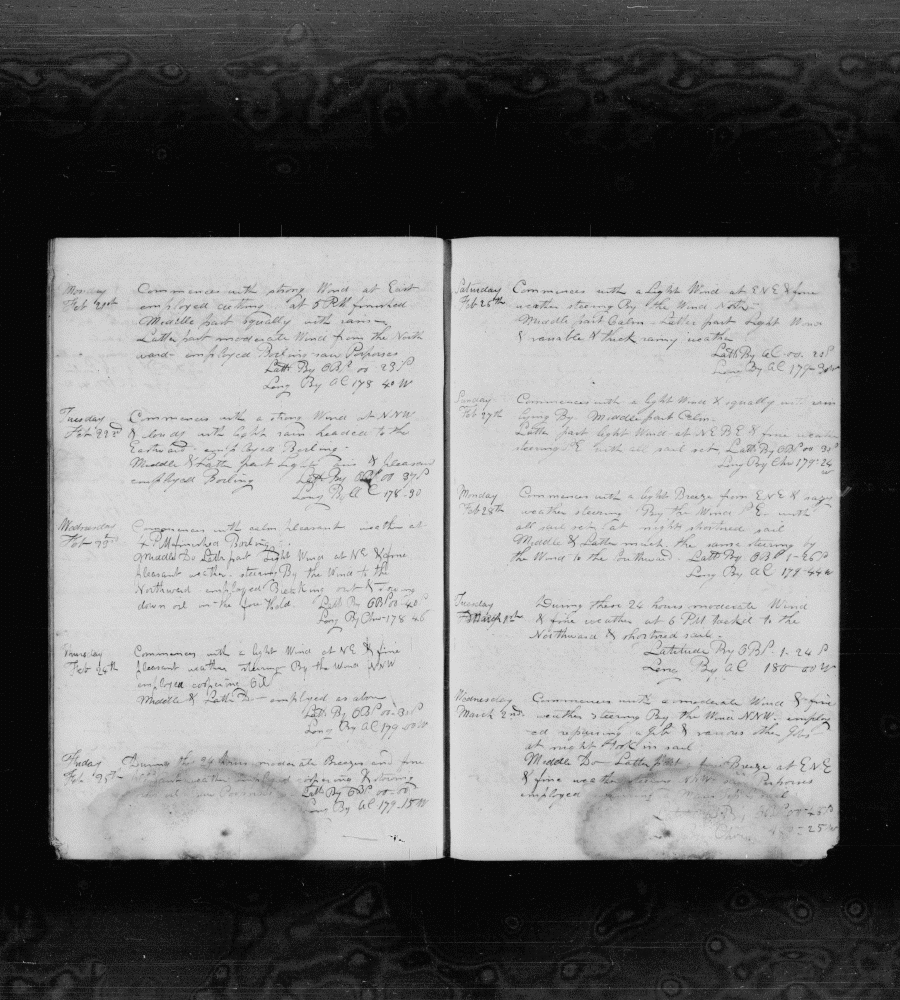 Monday Commences with strong Wind at East
Feb 21st employed cutting at 5 PM finished
Middle part Squally with rain
Latter part moderate Wind from the North
ward employed Boiling saw Porpoises
Latt By OBS 00 23 S
Long By AC 178 40 W
Tuesday Commences with a strong Wind at NNW
Feb 22nd & clouds with light rain headed to the
Eastward employed Boiling
Middle & Latter part light & pleasant
employed Boiling Latt By OBS 00 37 S
Long By AC 178-30
Wednesday Commences with calm pleasant weather at
Feb 23rd 4 PM finished Boiling
Middle Do Latt part Light Wind at NE & fine
pleasant weather. steering By the Wind to the
Northward employed Breaking out &
down oil in the fore Hold. Latt By OBS 00-40 S
Long By Chro 178 46
Thursday Commences with a light Wind at NE & fine
Feb 24th pleasant weather steering By the Wind NNW
employed coopering Oil
Middle & Latter Do employed as above
Latt By OBS 00-30 S
Long By AC 179-00 W
Friday During the 24 hours moderate Breezes and fine
Feb 25th pleasant weather employed coopering & stowing
Latt By OBS 00-00
Long By AC 179-15 W
Saturday Commences with a Light Wind at ENE & fine
Feb 26th weather steering By the Wind North
Middle part Calm - Latter part Light Wind
& variable & thick rainy weather
Latt By AC 00. 20 S
Long By AC 179-30 W
Sunday Commences with a light Wind & squally with rain
Feb 27th lying By Middle part Calm
Latter part light Wind at NEBE & fine weather
steering E with all sail set Latt By OBS 00 3
Long By Chro 179-24
W
Monday Commences with a light Breeze from ENE &
Feb 28th weather steering By the Wind with
all sail set at night shortned sail
Middle & Latter much the same steering by
the Wind to the Southward Latt By OBS 1-26 S
Long By AC 179-44 W
Tuesday During these 24 hours moderate Wind
March 1st & fine weather at 6 PM tacked to the
Northward & shortned sail.
Latitude By OBS 1-24 S
Long By AC 180-00 W
Wednesday Commences with a moderate Wind & fine
March 2nd weather steering By the Wind NNW employ
ed repairing a Jib & various other Jobs
at night took in sail
Middle Do Latter part Breeze at ENE
& fine weather NNW Porpoises
employed
By 00-45 S
Chro 179-25 W